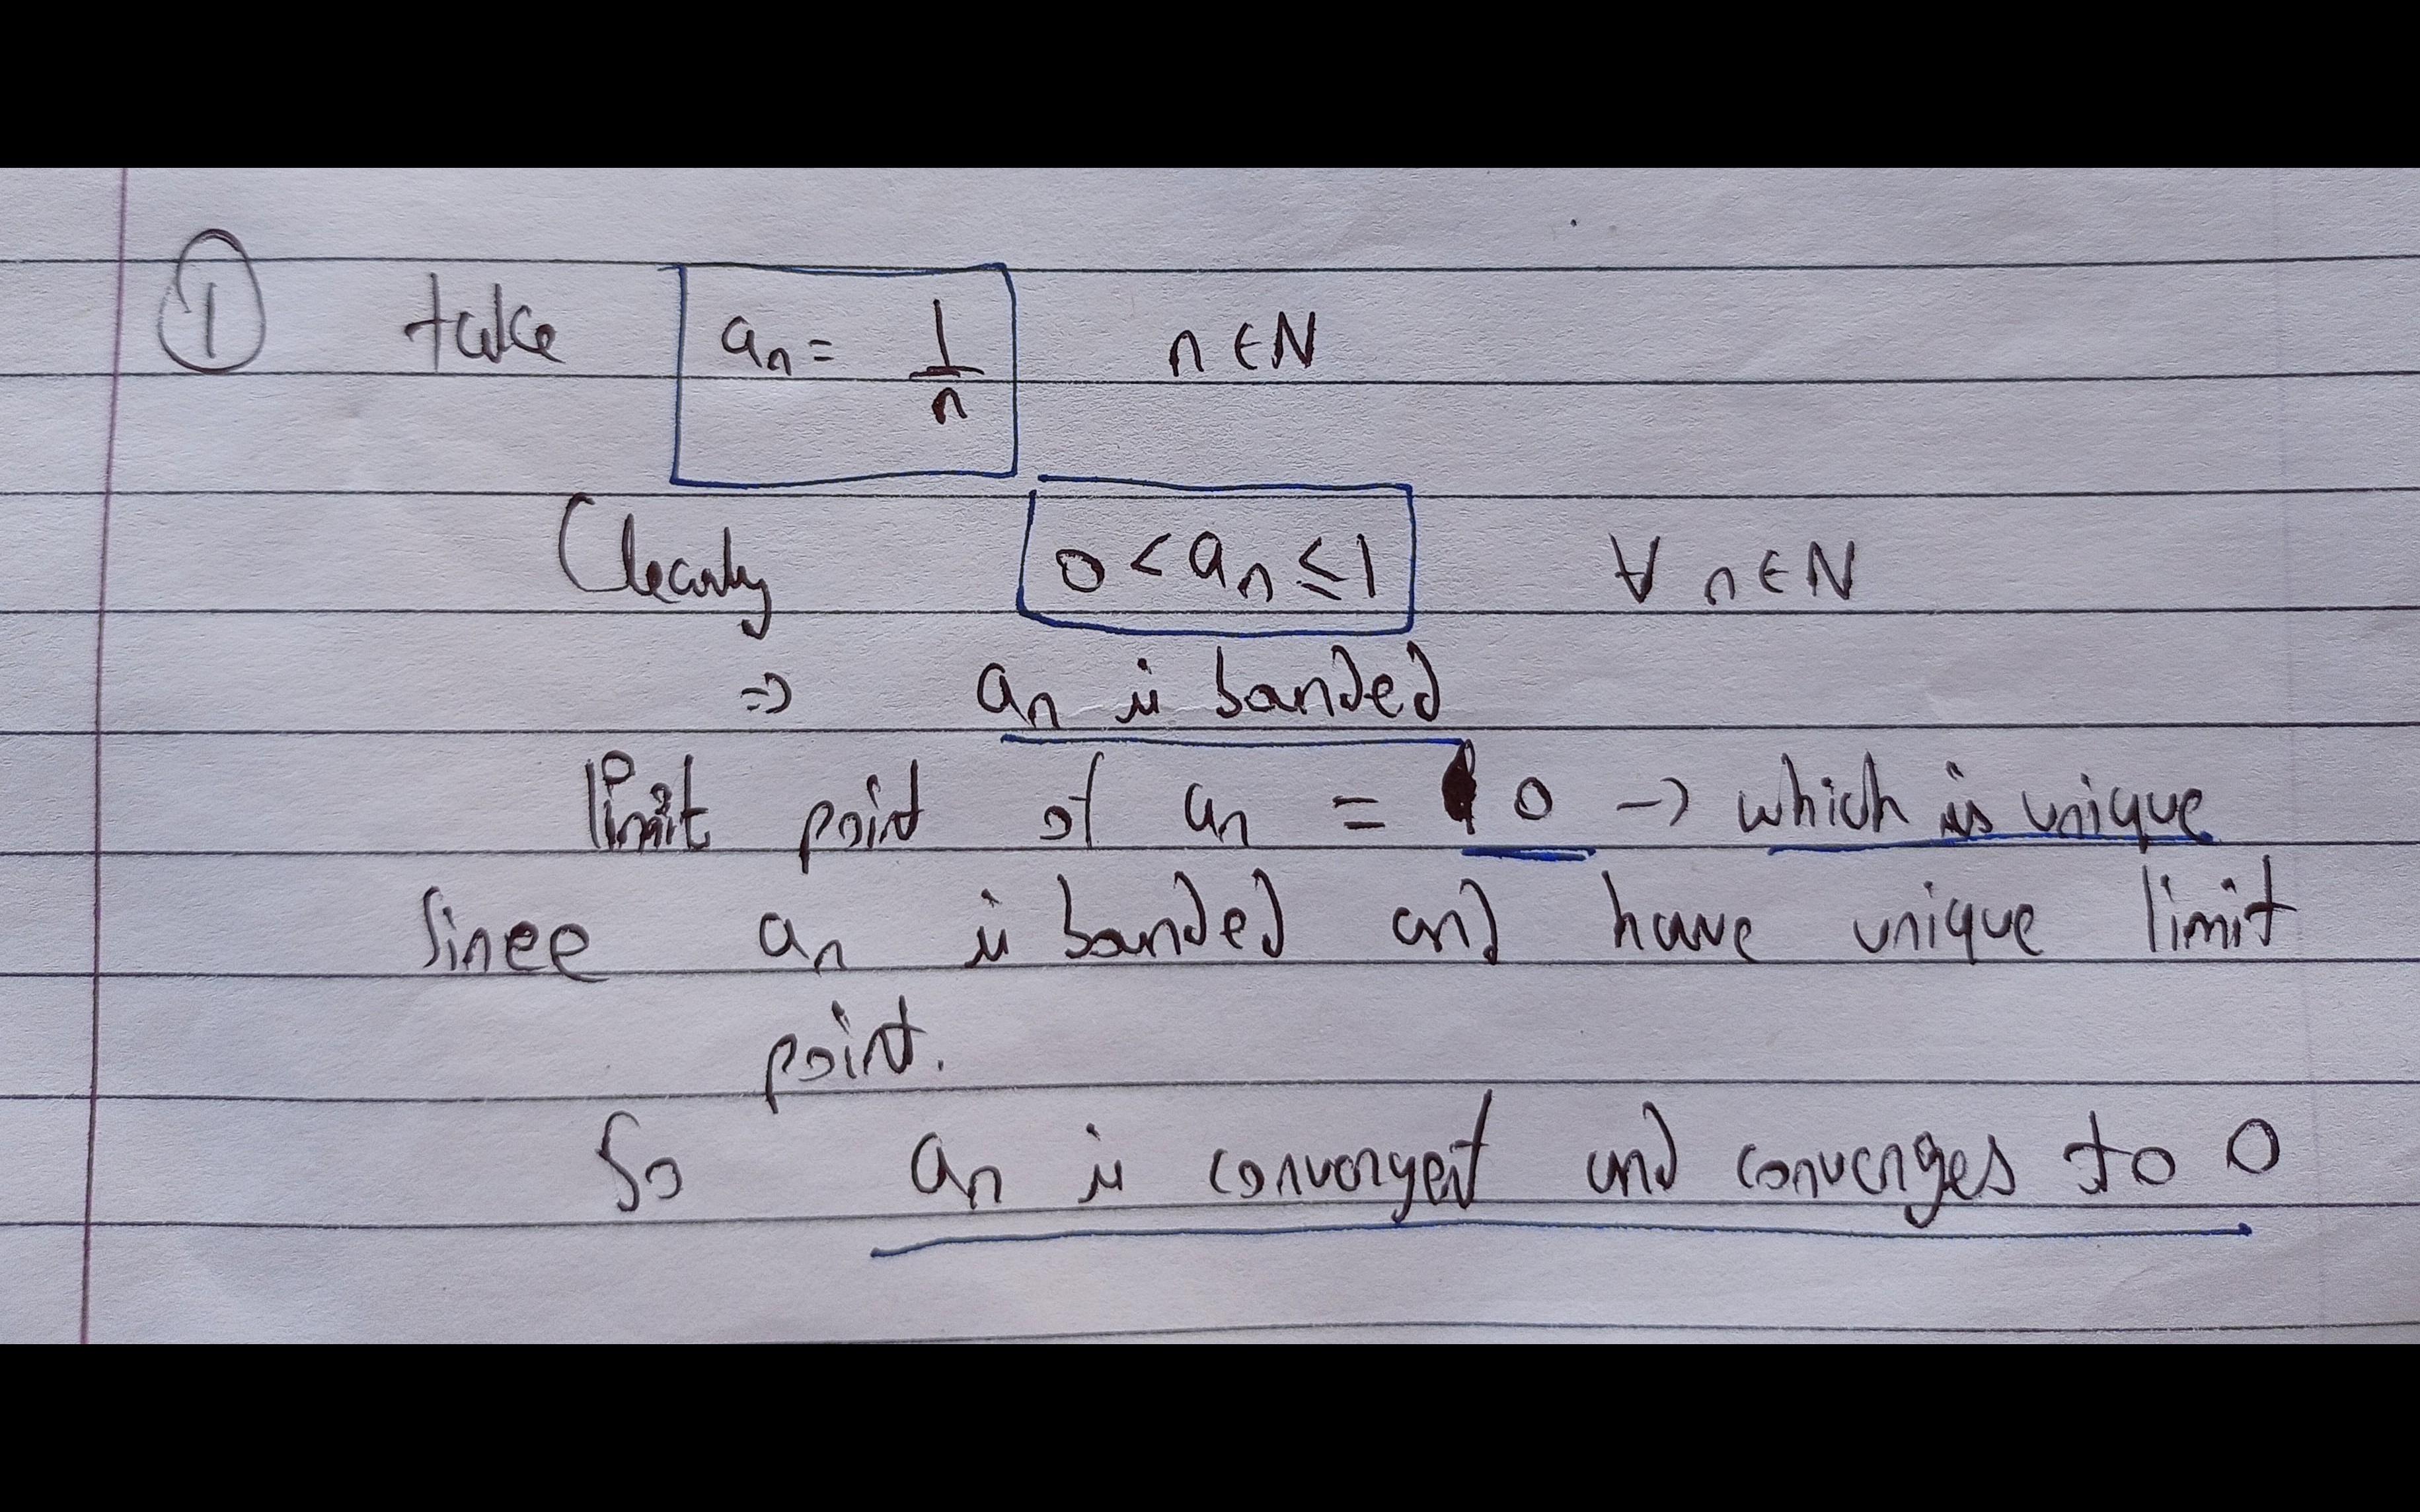 ① take aₙ = 1/n n ∈ N
Clearly 0 < aₙ ≤ 1 ∀ n ∈ N
⇒ aₙ is bounded
limit point of aₙ = 0 → which is unique
Since aₙ is bounded and have unique limit
point.
So aₙ is convergent and converges to 0